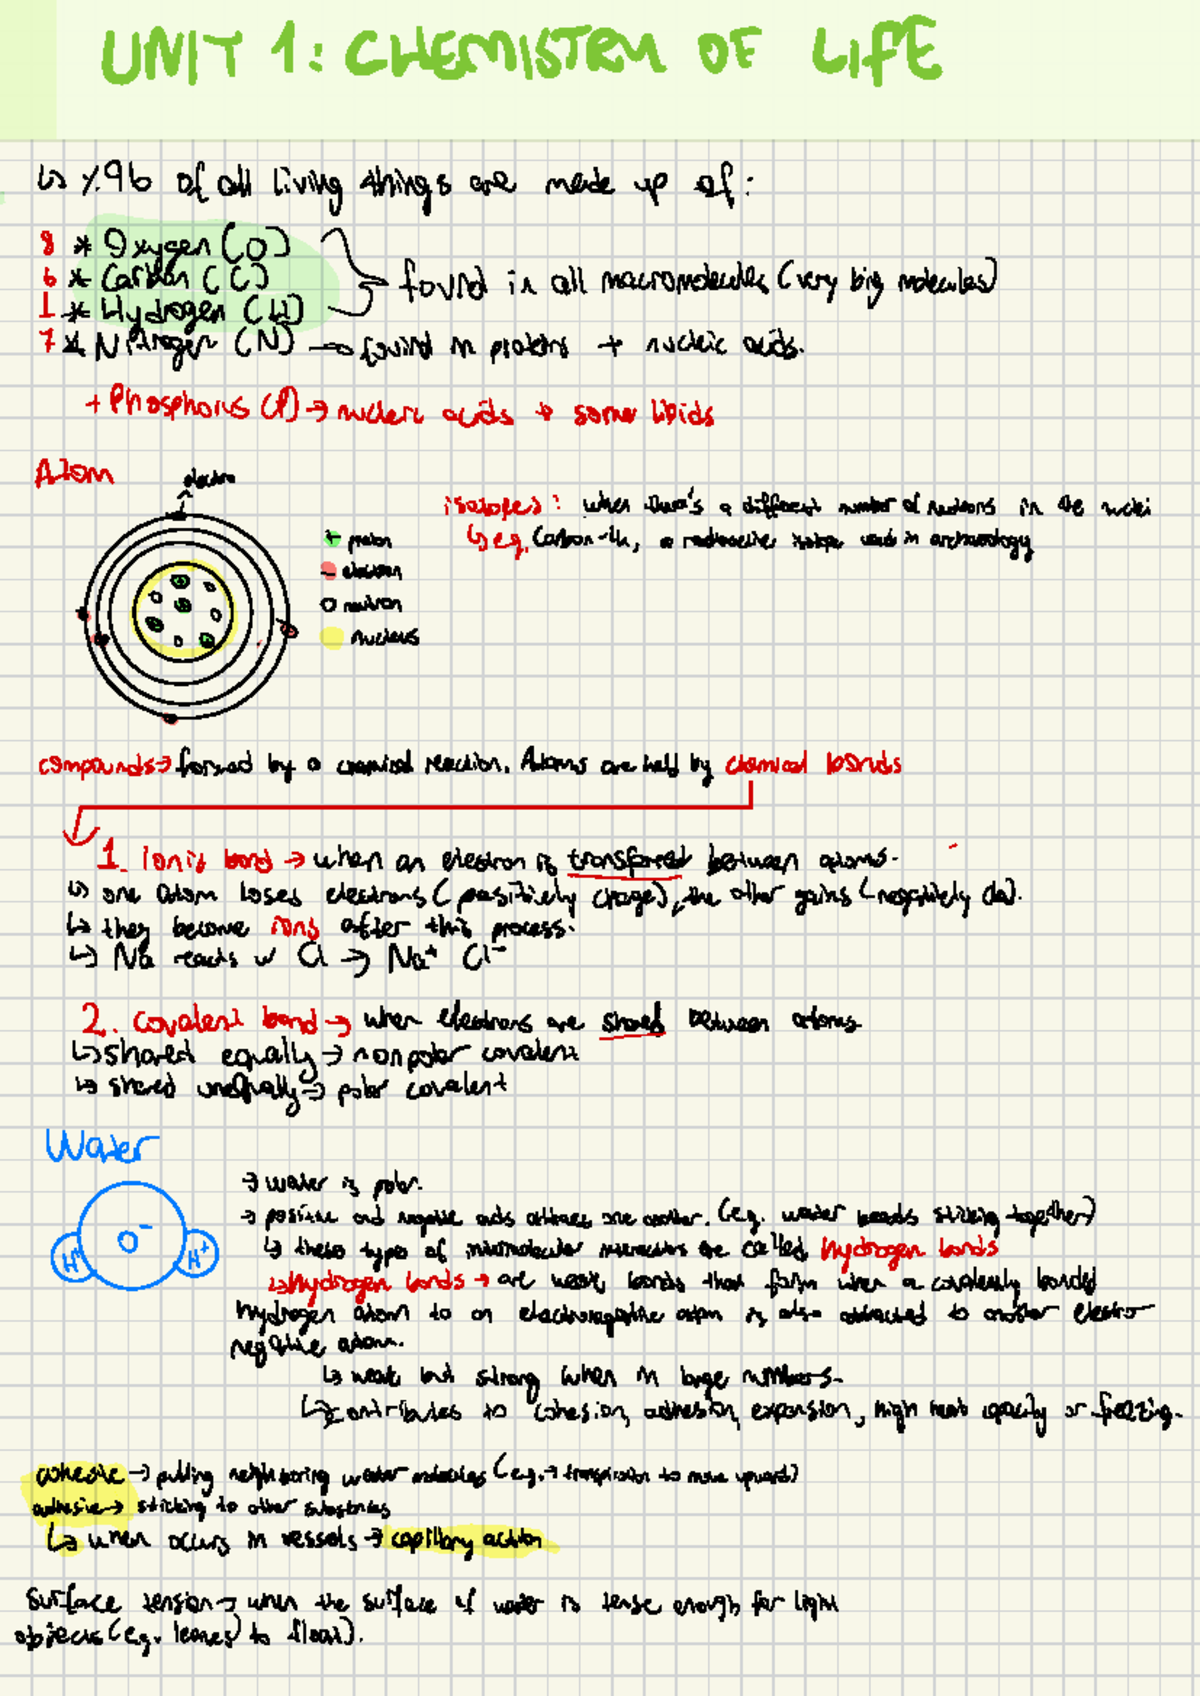 UNIT 1: CHEMISTRY OF LIFE
↳ %96 of all living things are made up of:
8 * Oxygen (O)
6 * Carbon (C)
1 * Hydrogen (H)
found in all macromolecules (very big molecules)
7 * Nitrogen (N) → found in proteins + nucleic acids.
+ Phosphorus (P) → nucleic acids + some lipids
Atom
electro
+ proton
- electron
o neutron
nucleus
isotopes: when there's a different number of neutrons in the nuclei
↳ eg. Carbon-14, a radioactive isotope used in archaeology
compounds → formed by a chemical reaction. Atoms are held by chemical bonds
1. ionic bond → when an electron is transferred between atoms.
↳ one atom loses electrons (positively charge), the other gains (negatively cha).
↳ they become ions after this process.
↳ Na reacts w Cl → Na⁺ Cl⁻
2. covalent bond → when electrons are shared between atoms
↳ shared equally → nonpolar covalent
↳ shared unequally → polar covalent
Water
O⁻
H⁺
H⁺
→ water is polar.
→ positive and negative ends attract one another. (e.g. water beads sticking together)
↳ these types of intermolecular interactions are called hydrogen bonds
↳ hydrogen bonds → are weak bonds that form when a covalently bonded
hydrogen atom to an electronegative atom is also attracted to another electro
negative atom.
↳ weak but strong when in large numbers.
↳ contributes to cohesion, adhesion, expansion, high heat capacity or freezing.
cohesive → pulling neighboring water molecules (e.g. → transpiration to move upward)
adhesive → sticking to other substances
↳ when occurs in vessels → capillary action
surface tension → when the surface of water is tense enough for light
objects (e.g. leaves) to float).